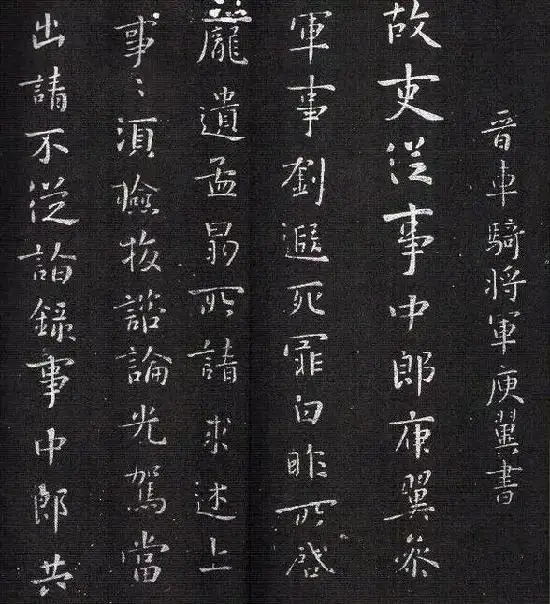 晉車騎將軍庾翼書
故吏從事中郎庾翼參
軍事劉遐死罪白昨所啓
龐遺孟昜所請求述上
事〻須檢校諮論光駕當
出請不從諮錄事中郎共